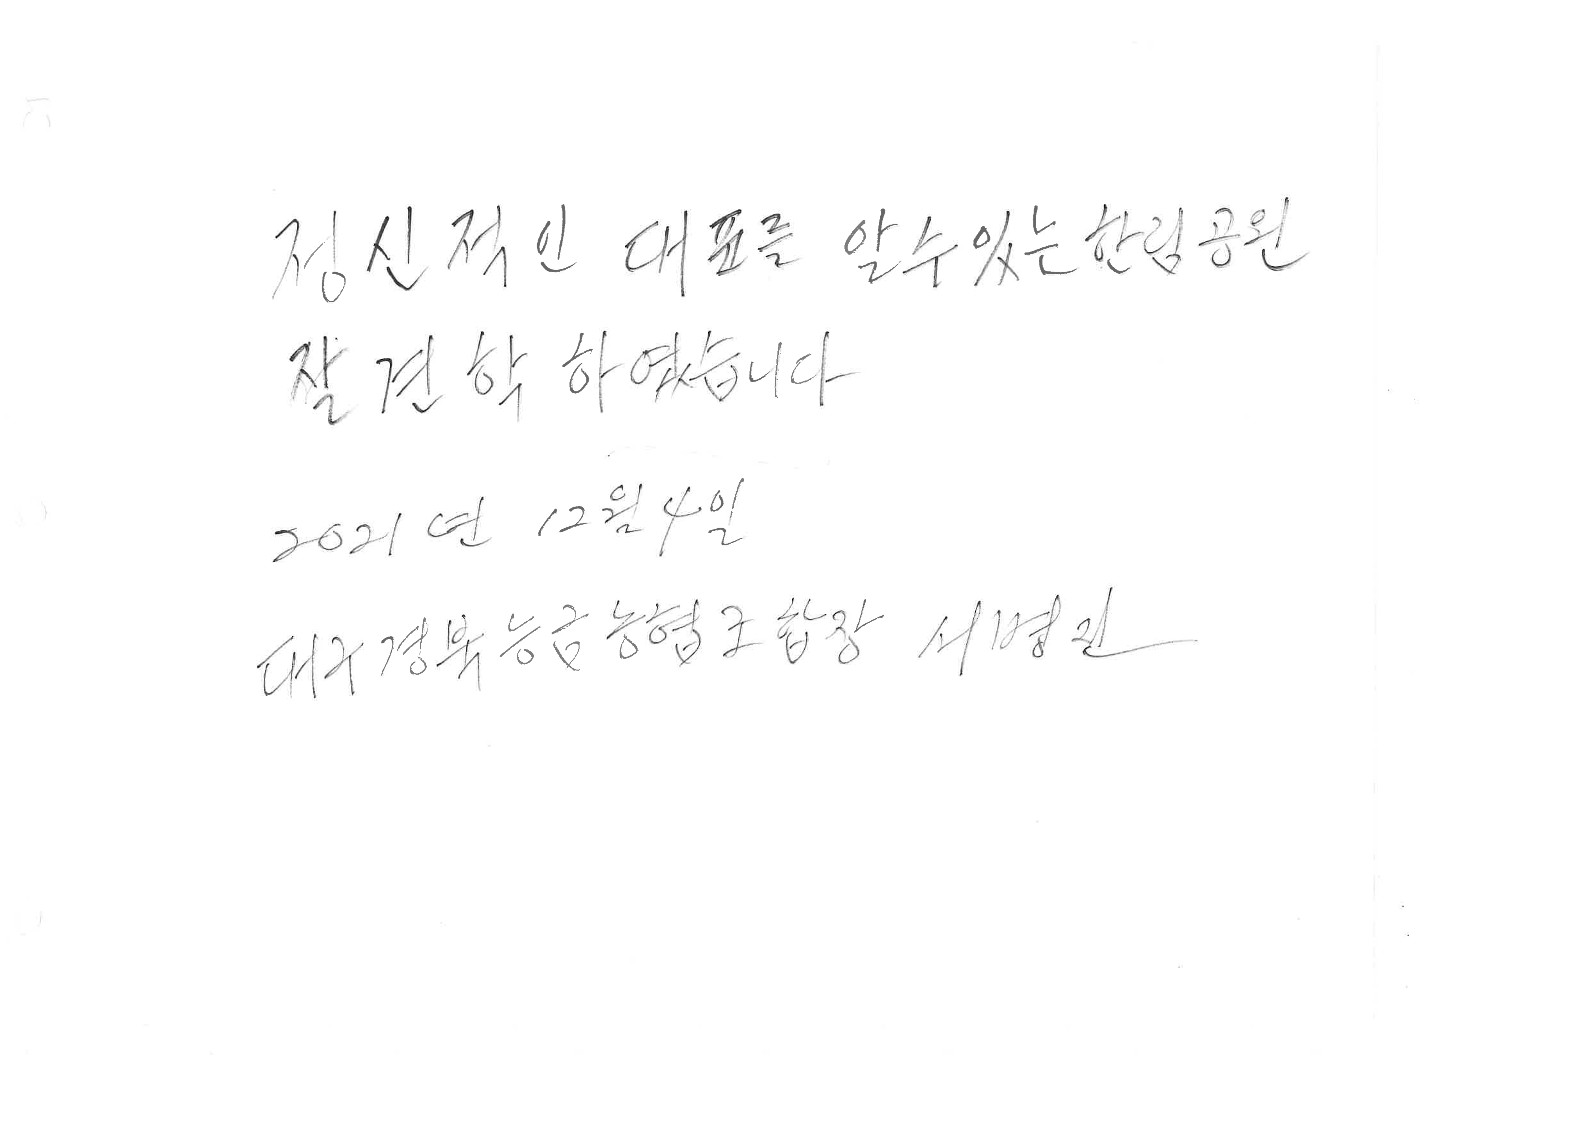 정신적인 대표를 알수있는 한림공원
잘 견학 하였습니다
2021년 12월 4일
대구경북능금농협조합장 서병진